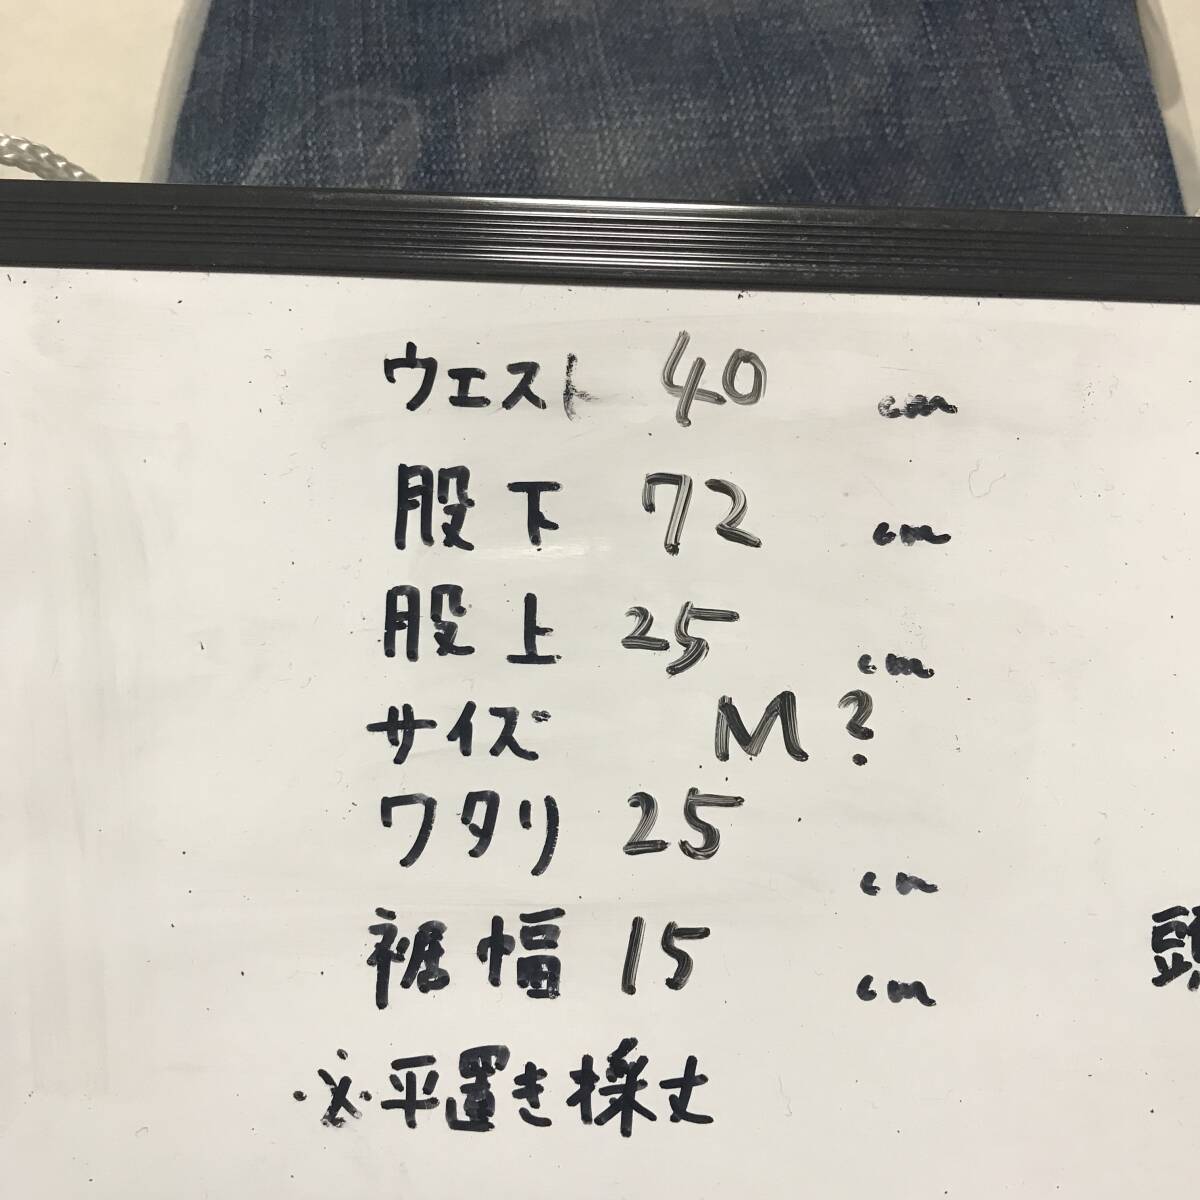 ウエスト 40 cm
股下 72 cm
股上 25 cm
サイズ M?
ワタリ 25 cm
裾幅 15 cm
頭
※平置き採丈